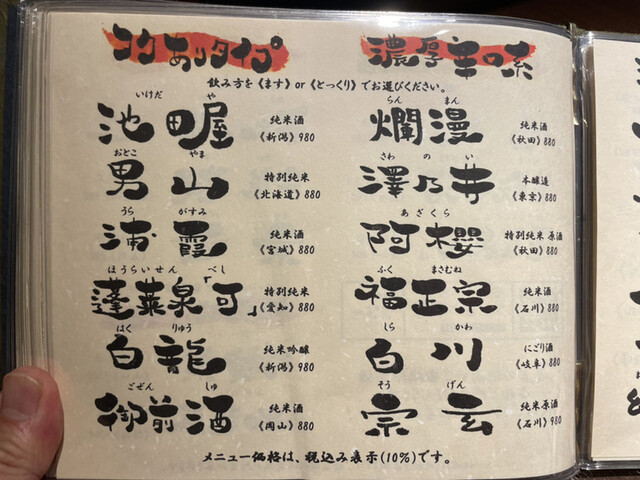 コクありタイプ
濃厚辛口系
飲み方を《ます》or《とっくり》でお選びください。
いけだ や
池田屋
純米酒
《新潟》980
おとこ やま
男山
特別純米
《北海道》880
うら がすみ
浦霞
純米酒
《宮城》880
ほうらいせん べし
蓬莱泉「可」
特別純米
《愛知》880
はく りゅう
白龍
純米吟醸
《新潟》980
ごぜん しゅ
御前酒
純米酒
《岡山》880
らん まん
爛漫
純米酒
《秋田》880
さわ の い
澤乃井
本醸造
《東京》880
あざくら
阿櫻
特別純米 原酒
《秋田》880
ふく まさむね
福正宗
純米酒
《石川》880
しら かわ
白川
にごり酒
《岐阜》880
そう げん
宗玄
純米原酒
《石川》980
メニュー価格は、税込み表示(10%)です。